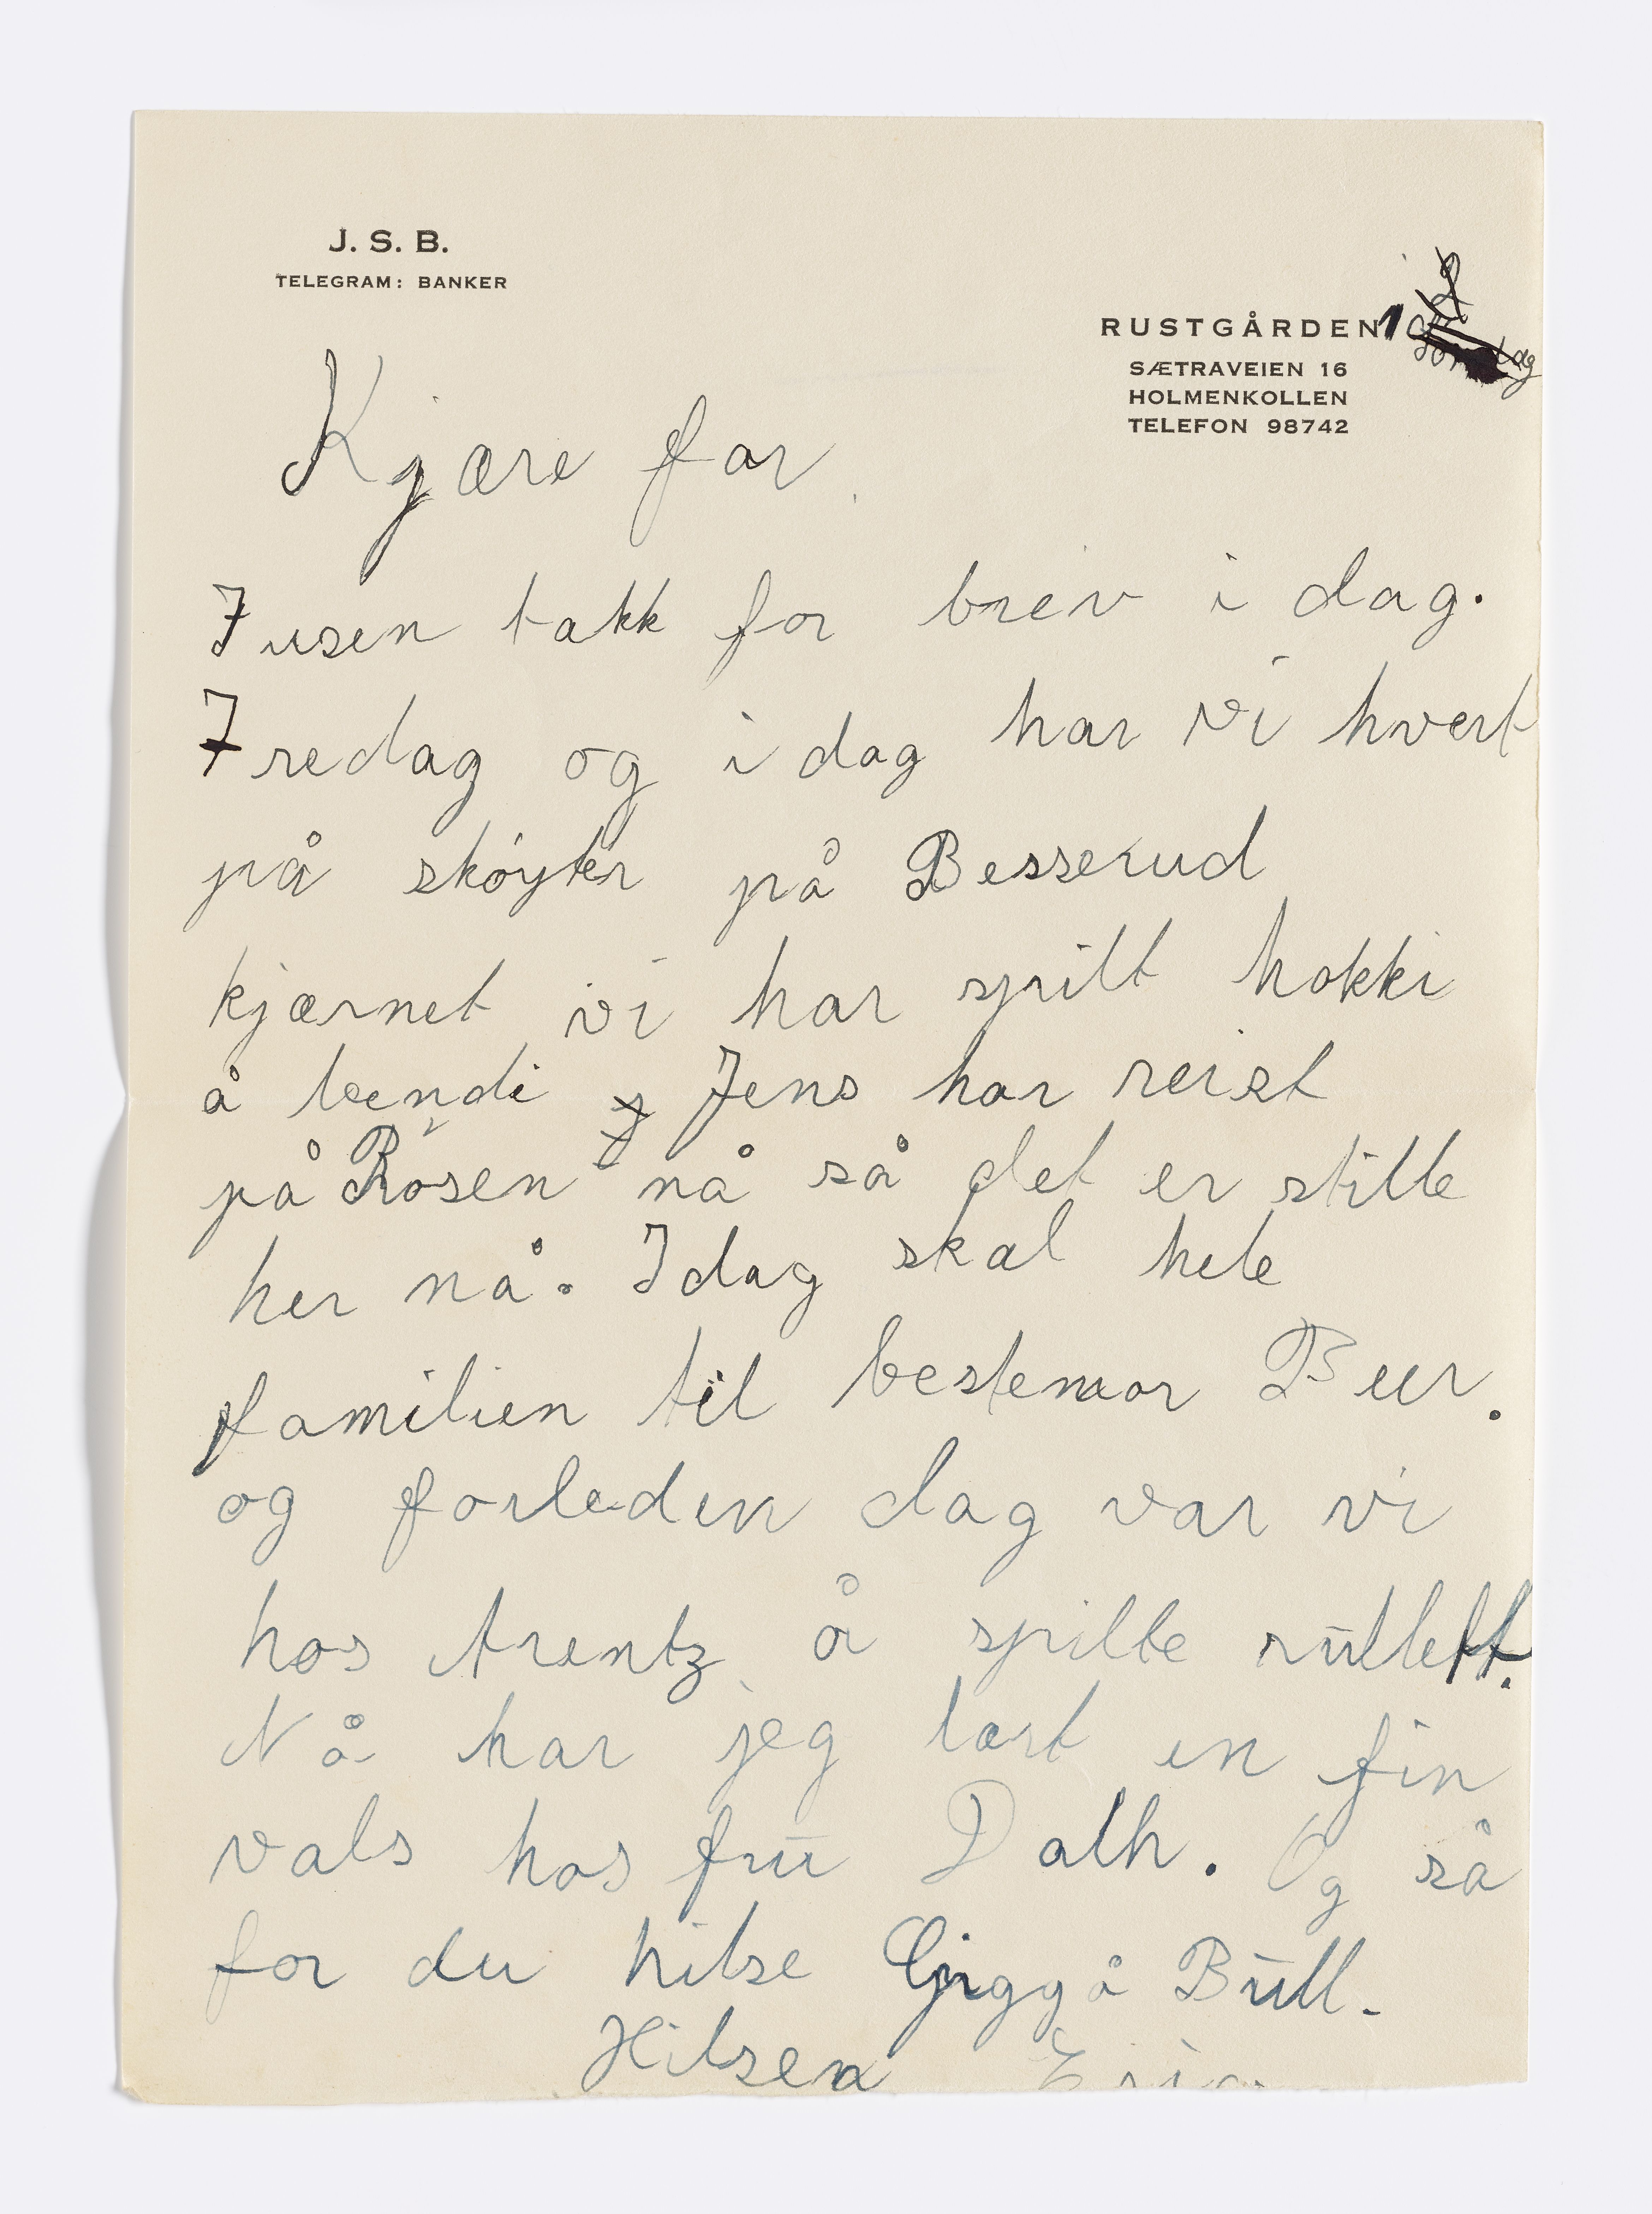 J. S. B.
TELEGRAM: BANKER
RUSTGÅRDEN
SÆTRAVEIEN 16
HOLMENKOLLEN
TELEFON 98742
Kjære far
Tusen takk for brev i dag.
Fredag og i dag har vi hvert
på skøyter på Besserud
kjærnet vi har spilt hokki
å bendi Jens har reist
på Råsen nå så det er stille
her nå. Idag skal hele
familien til bestemor Bur.
og forleden dag var vi
hos Arentz å spille rullett.
Nå har jeg lært en fin
vals hos fru Dalh. Og så
for du hilse å Bull.
Hilsen